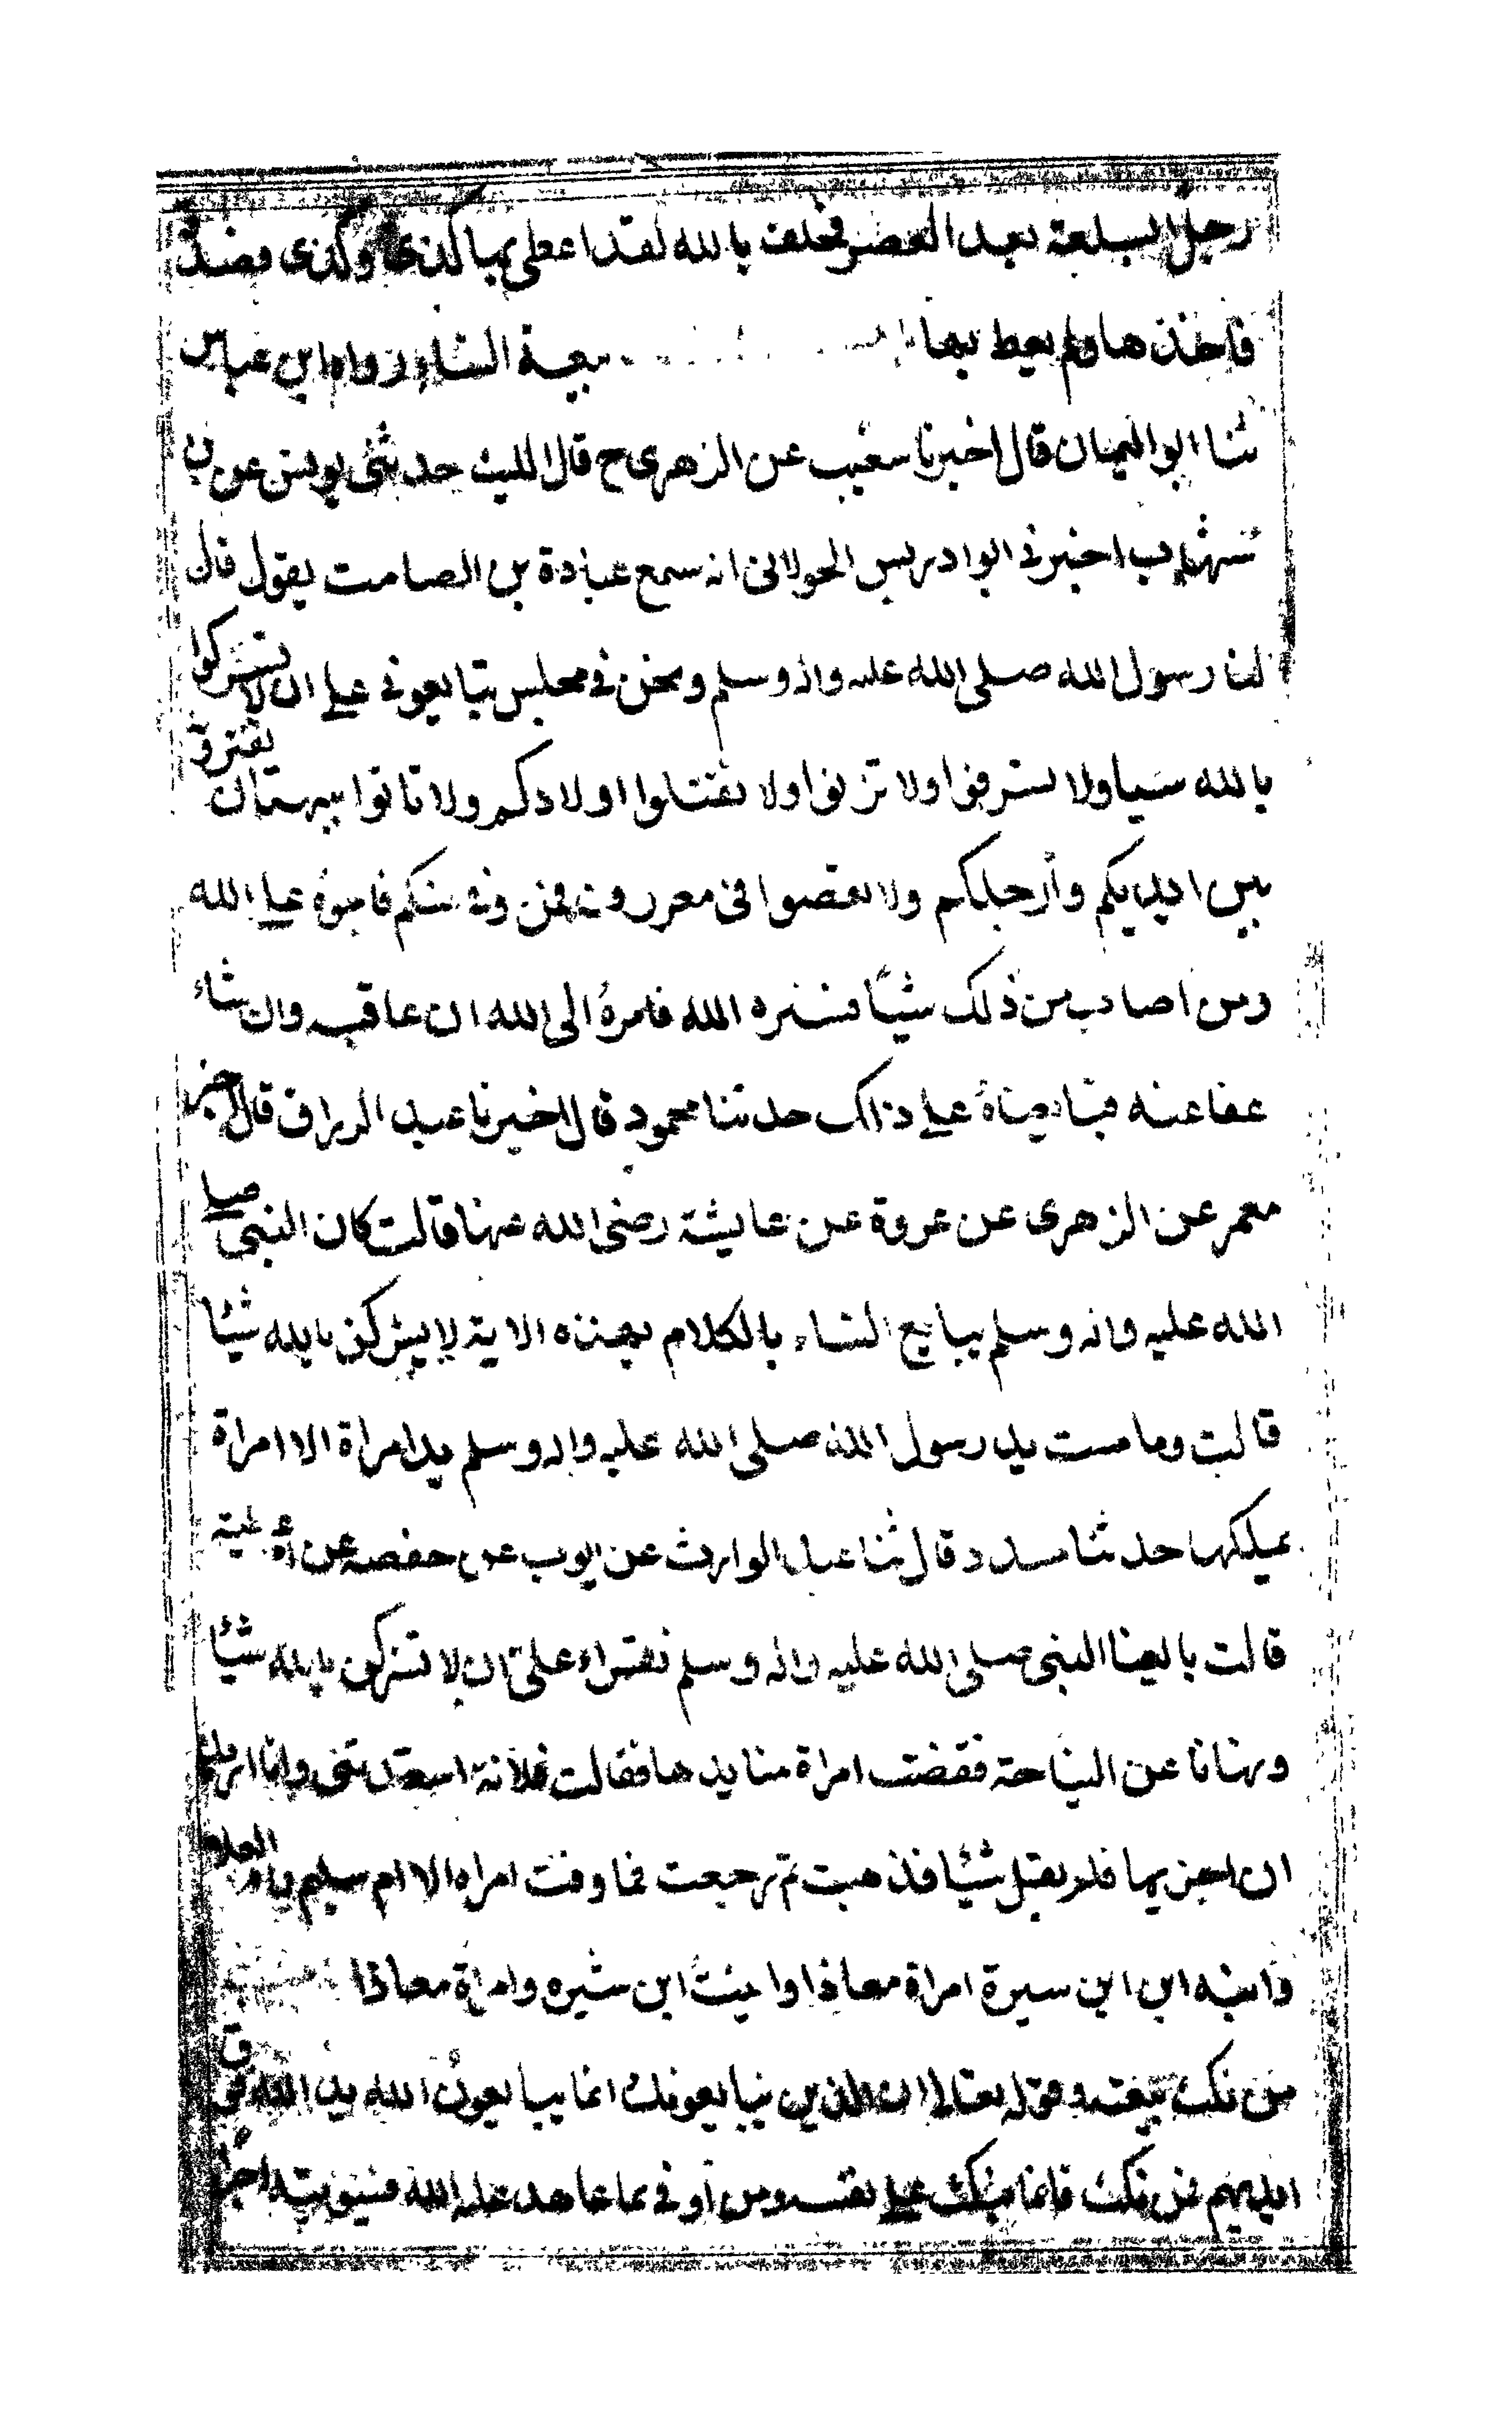 رجلا بسلعة بعد العصر فحلف بالله لقد اعطى بها كذى وكذى فصدقه
فاخذها ولم يعط بها بيعة النساء رواه ابن عباس
ثنا ابو اليمان قال اخبرنا شعيب عن الزهرى ح قال الليث حدثنى يونس عن بن
شهاب اخبرنى ابو ادريس الخولانى انه سمع عبادة بن الصامت يقول قال
لنا رسول الله صلى الله عليه واله وسلم ونحن فى مجلس تبايعونى على ان لا تشركوا
بالله شيا ولا تسرقوا ولا تزنوا ولا تقتلوا اولادكم ولا تاتوا ببهتان تفترو
بين ايديكم وأرجلكم ولا تعصوا فى معروف فمن وفى منكم فاجره على الله
ومن اصاب من ذلك شيئا فستره الله فامره الى الله ان عاقبه وان شاء
عفا عنه فبايعناه على ذالك حدثنا محمود قال اخبرنا عبد الرزاق قال اخبر
معمر عن الزهرى عن عروة عن عايشة رضى الله عنها قالت كان النبى صلى
الله عليه واله وسلم يبايع النساء بالكلام بهذه الاية لا يشركن بالله شيئا
قالت وما مست يد رسول الله صلى الله عليه واله وسلم يد امراة الا امراة
يملكها حدثنا مسدد قال ثنا عبد الوارث عن ايوب عن حفصة عن أم عطية
قالت بايعنا النبى صلى الله عليه واله وسلم فقراء على ان لا تشركن بالله شيئا
ونهانا عن النياحة فقضت امراة منا يدها فقالت فلانة اسعدتنى وانا اريد
ان اجزيها فلم يقل شيئا فذهبت ثم رجعت فما وفت امراه الا ام سليم وام العلا
وابنه ابى ابن سبرة امراة معاذ او ابنت ابن سبره وامراة معاذ
من نكث بيعته وقوله تعالى ان الذين يبايعونك انما يبايعون الله يد الله فوق
ايديهم فمن نكث فانما ينكث على نفسه ومن أوفى بما عاهد عليه الله فسيوتيه اجرا